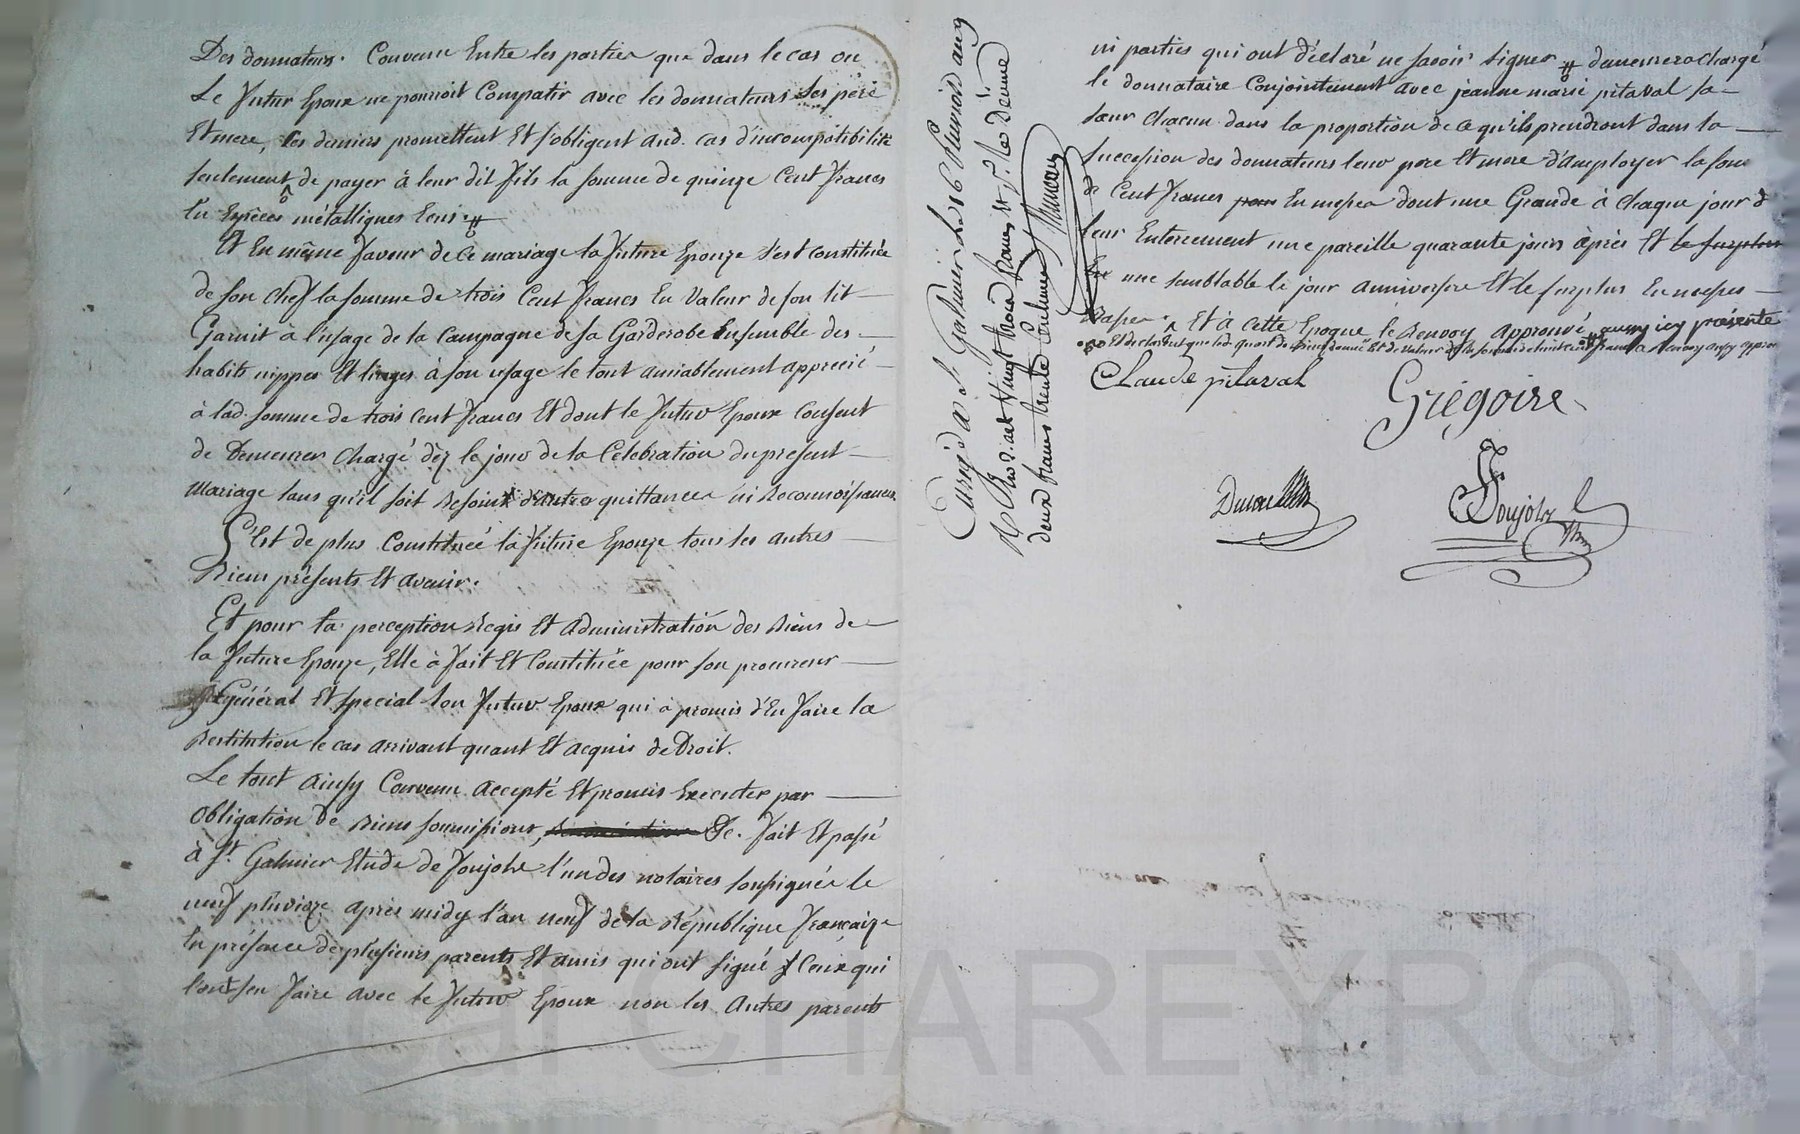 Des donnateurs. Convenu Entre les parties que dans le cas ou
Le futur Epoux ne pourroit Compatir avec les donnateurs ses père
Et mere, Ces derniers promettent Et s'obligent aud. cas d'incompatibilité
seulement de payer à leur dit fils la somme de quinze Cent francs
En Espèces métalliques
Et En même faveur de Ce mariage la future Epouze s'est constituée
de son Chef la somme de trois Cent francs En Valeur de son lit
Garnit à l'usage de la Campagne de sa Garderobe Ensemble des
habits nippes Et linges à son usage le tout amiablement apprecié
à lad. somme de trois cent francs Et dont le futur Epoux Consent
de Demeurer Chargé dèz le jour de la Célébration du présent
Mariage sans qu'il soit Besoin d'autre quittance ni Reconnoissance
S'Est de plus Constituée la future Epouze tous les autres
Biens présents Et avenir.
Et pour la perception Regie Et administration des Biens de
la future Epouze, Elle à fait Et Constituée pour son procureur
Général Et special son futur Epoux qui a promis d'En faire la
Restitution le cas arrivant quant Et acquis de Droit.
Le tout ainsy Convenu accepté Et promis Executer par
obligation de Biens soumissions, &c. fait Et passé
à St. Galmier Etude de Foujols l'un des notaires soussignés le
neuf pluvioze après midy l'an neuf de la République française
En présence de plusieurs parents Et amis qui ont signé Ceux qui
l'ont sçu faire avec le futur Epoux non les Autres parents
ni parties qui ont déclaré ne savoir signer demeurera chargé
le donnataire Conjointement avec jeanne marie pitaval sa
sœur chacun dans la proportion de Ce qu'ils prendront dans la
succession des donnateurs leur pere Et mere d'Employer la som
de Cent francs En messes dont une Grande à Chaque jour d
leur Enterrement une pareille quarante jours après Et le surplus
une semblable le jour anniversre Et le surplus En messes
Basses Et à Cette Epoque le Renvoy Approuvé
Claude pitaval
Grégoire
Foujols
Enrgé à St Galmier Le 16 Pluviose an 9
deux francs trente Centimes